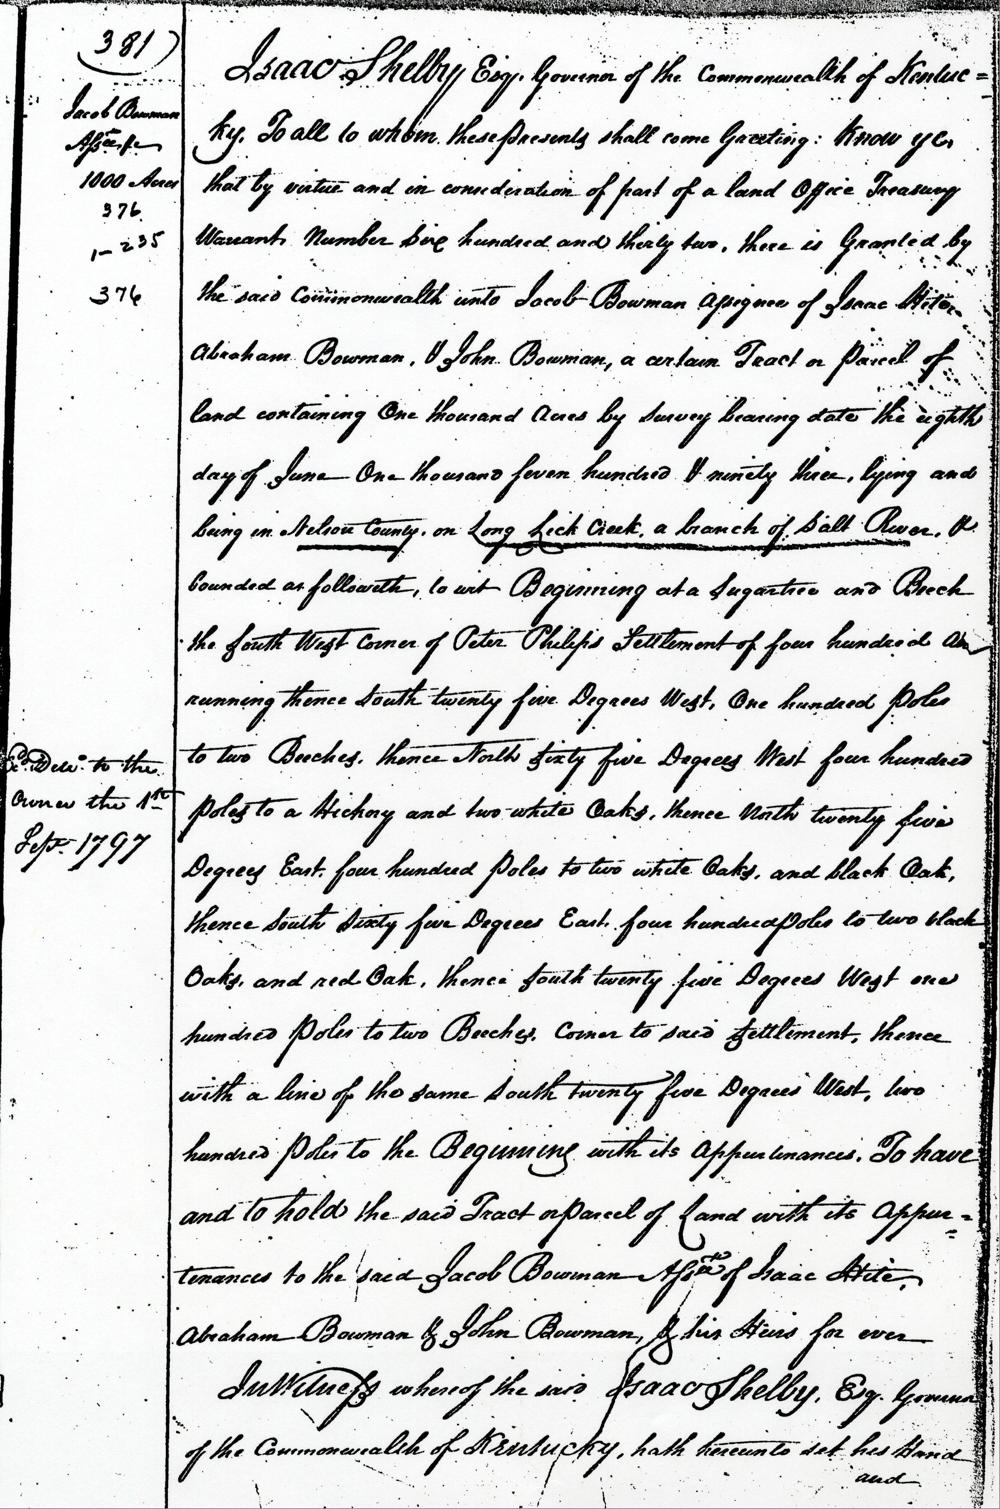 381)
Jacob Bowman
Assee &c
1000 Acres
376
1-235
376
Isaac Shelby Esqr. Governor of the Commonwealth of Kentuc=
ky. To all to whom these presents shall come Greeting: Know ye
that by virtue and in consideration of part of a land Office Treasury
Warrant Number Six hundred and thirty two, there is Granted by
the said Commonwealth unto Jacob Bowman assignee of Isaac Hite
Abraham Bowman, & John Bowman, a certain Tract or Parcel of
land containing One thousand Acres by Survey bearing date the eighth
day of June One thousand seven hundred & ninety three, lying and
being in Nelson County, on Long Lick Creek, a branch of Salt River, &
bounded as followeth, to wit Beginning at a Sugartree and Beech
the South West corner of Peter Philips Settlement of four hundred
running thence South twenty five Degrees West, One hundred Poles
to two Beeches, thence North Sixty five Degrees West four hundred
Poles to a Hickory and two white Oaks, thence North twenty five
Degrees East, four hundred Poles to two white Oaks, and black Oak,
thence South Sixty five Degrees East four hundred Poles to two black
Oaks, and red Oak, thence South twenty five Degrees West one
hundred Poles to two Beeches, Corner to said Settlement, thence
with a line of the same South twenty five Degrees West, two
hundred Poles to the Beginning with its Appurtinances. To have
and to hold the said Tract or Parcel of Land with its Appur=
tenances to the said Jacob Bowman Assee of Isaac Hite,
Abraham Bowman & John Bowman, & his Heirs for ever
In Witness whereof the said Isaac Shelby, Esq. Governor
of the Commonwealth of Kentucky, hath hereunto set his Hand
and
Exd. Deld. to the
Owner the 1st
Sept. 1797